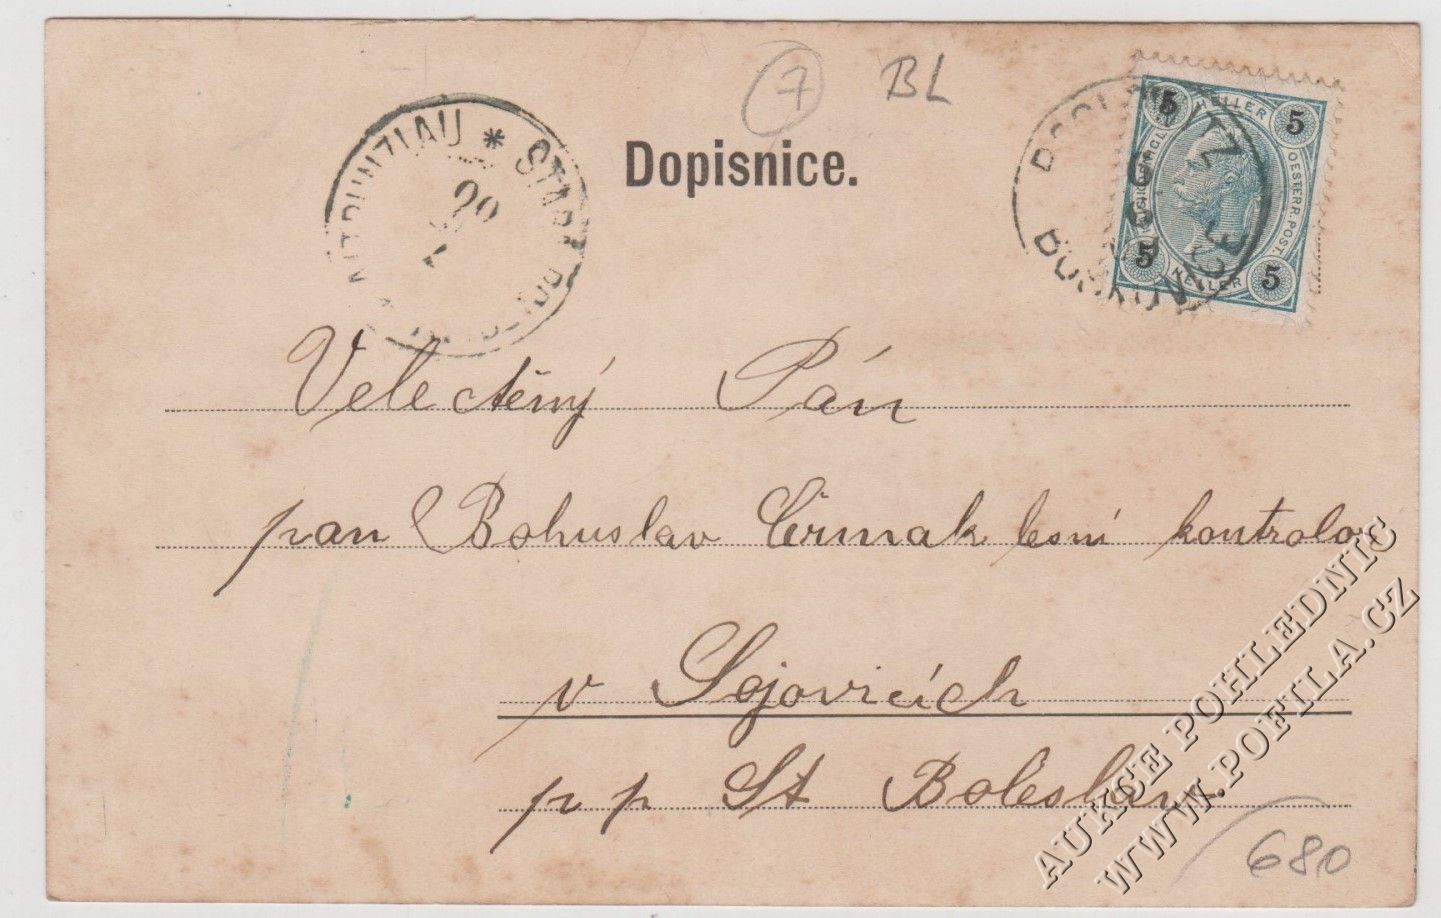 7 BL
Dopisnice.
ALTBUNZLAU * STARÁ
5 HELLER 5
OESTERR. POST.
5 HELLER 5
Velectěný Pán
pan Bohuslav Čermak lesní kontrolor
v Sojovicích
p p St Boleslav
680
AUKCE POHLEDNIC
WWW.POFILA.CZ